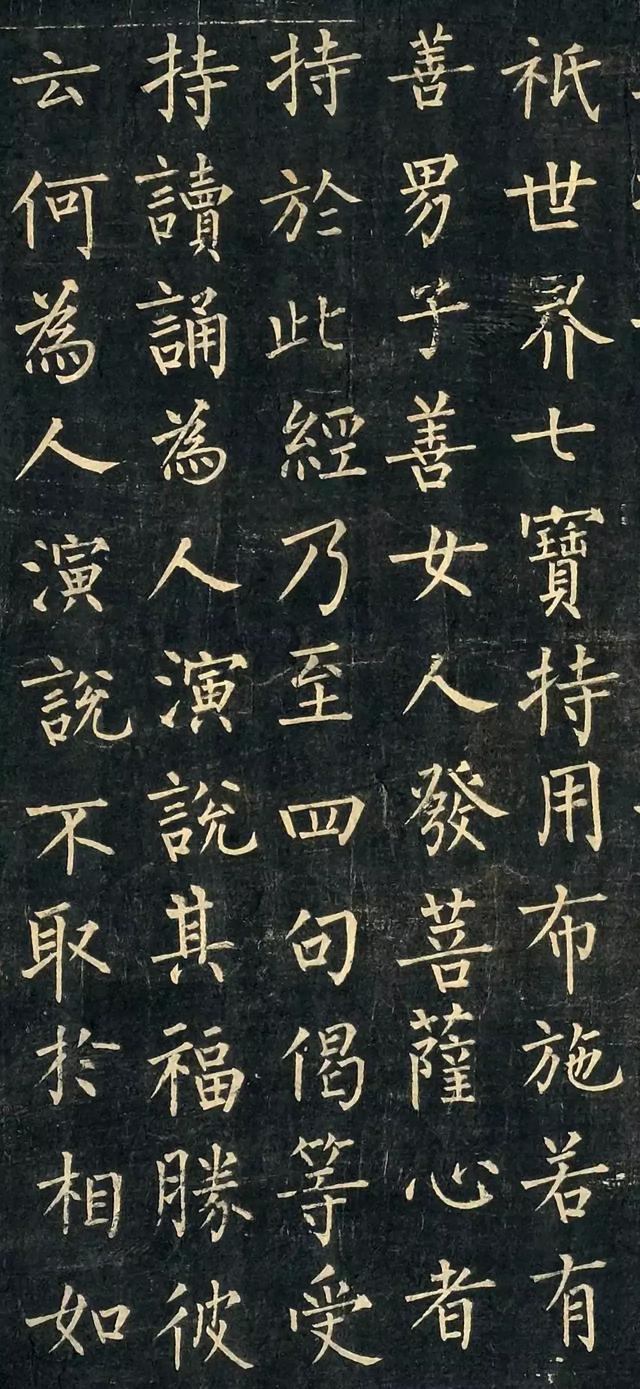 祇世界七寶持用布施若有
善男子善女人發菩薩心者
持於此經乃至四句偈等受
持讀誦為人演說其福勝彼
云何為人演說不取於相如